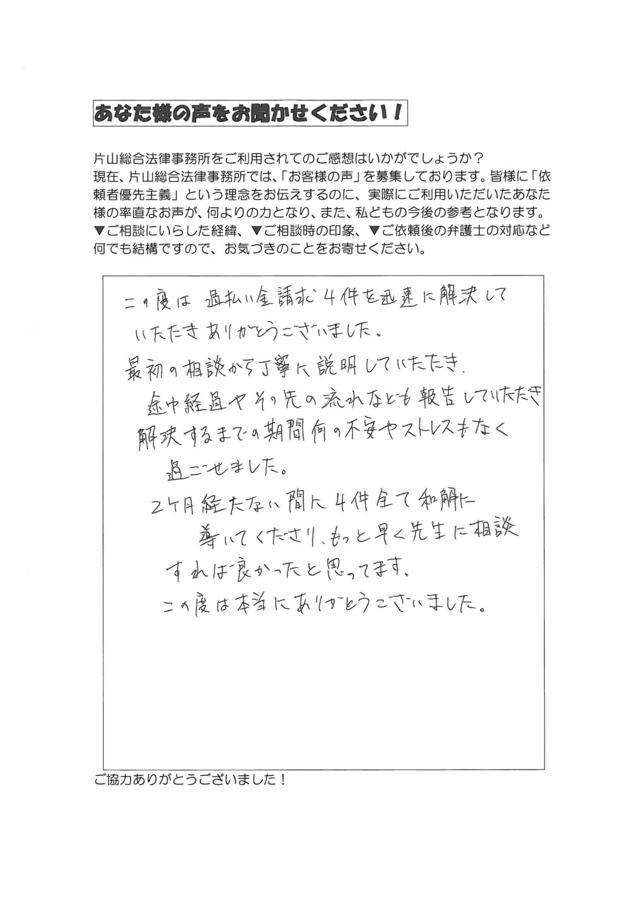 あなた様の声をお聞かせください！
片山総合法律事務所をご利用されてのご感想はいかがでしょうか？
現在、片山総合法律事務所では、「お客様の声」を募集しております。皆様に「依
頼者優先主義」という理念をお伝えするのに、実際にご利用いただいたあなた
様の率直なお声が、何よりの力となり、また、私どもの今後の参考となります。
▼ご相談にいらした経緯、▼ご相談時の印象、▼ご依頼後の弁護士の対応など
何でも結構ですので、お気づきのことをお寄せください。
この度は 過払い金請求 4件を迅速に解決して
いただきありがとうございました。
最初の相談から丁寧に説明していただき、
途中経過やその先の流れなども報告していただき
解決するまでの期間何の不安やストレスもなく
過ごせました。
2ヶ月経たない間に4件全て和解に
導いてくださり、もっと早く先生に相談
すれば良かったと思ってます。
この度は本当にありがとうございました。
ご協力ありがとうございました！